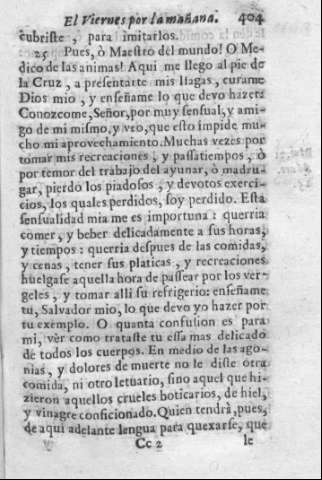 El Viernes por la mañana. 404
cubriste, para imitarlos.
25 Pues, ò Maestro del mundo! O Me-
dico de las animas! Aqui me llego al pie de
la Cruz, a presentarte mis llagas, curame
Dios mio, y enseñame lo que devo hazer:
Conozcome, Señor, por muy sensual, y ami-
go de mi mismo, y veo, que esto impide mu-
cho mi aprovechamiento. Muchas vezes por
tomar mis recreaciones, y passatiempos, ò
por temor del trabajo del ayunar, ò madru-
gar, pierdo los piadosos, y devotos exerci-
cios, los quales perdidos, soy perdido. Esta
sensualidad mia me es importuna: querria
comer, y beber delicadamente a sus horas,
y tiempos: querria despues de las comidas,
y cenas, tener sus platicas, y recreaciones
huelgase aquella hora de passear por los ver-
geles, y tomar alli su refrigerio: enseñame
tu, Salvador mio, lo que devo yo hazer por
tu exemplo. O quanta confusion es para
mi, vèr como trataste tu essa mas delicado
de todos los cuerpos. En medio de las ago-
nias, y dolores de muerte no le diste otra
comida, ni otro letuario, sino aquel que hi-
zieron aquellos crueles boticarios, de hiel,
y vinagre conficionado. Quien tendrà, pues,
de aqui adelante lengua para quexarse, que
Cc 2 le